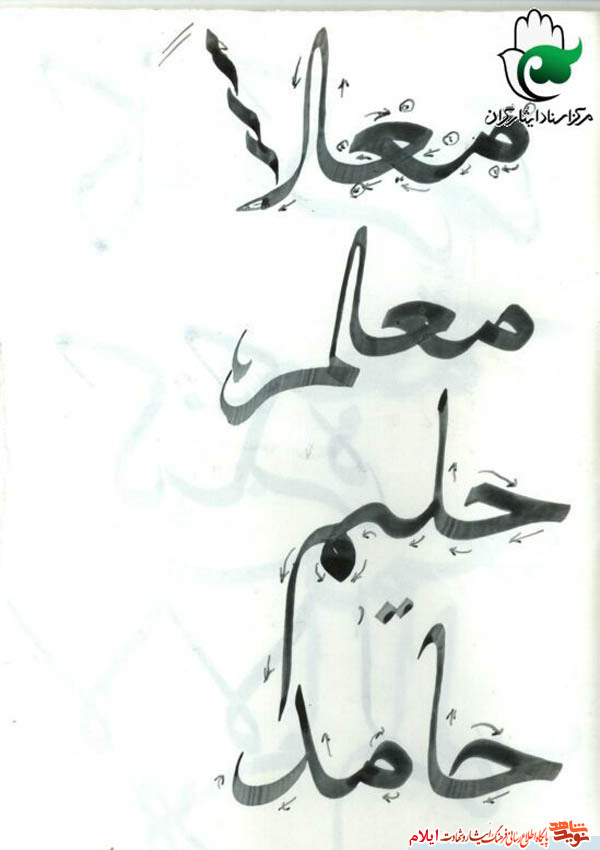 مرکز اسناد ایثارگران
معلا
معلم
حلیم
حامد
نوید شاهد پایگاه اطلاع رسانی فرهنگ ایثار و شهادت ایلام